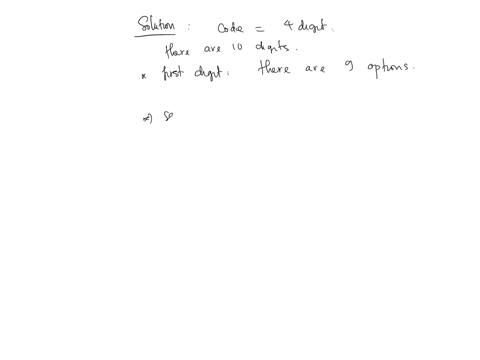 Solution : Code = 4 digit.
there are 10 digits.
* first digit: there are 9 options.
⇒ S